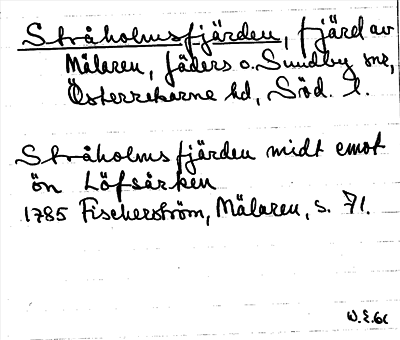 Stråholmsfjärden, fjärd av
Mälaren, Jäders o. Sundby snr,
Österrekarne hd, Söd. l.
Stråholmsfjärden midt emot
ön Löfsårken
1785 Fischerström, Mälaren, s. 71.
W.E.61